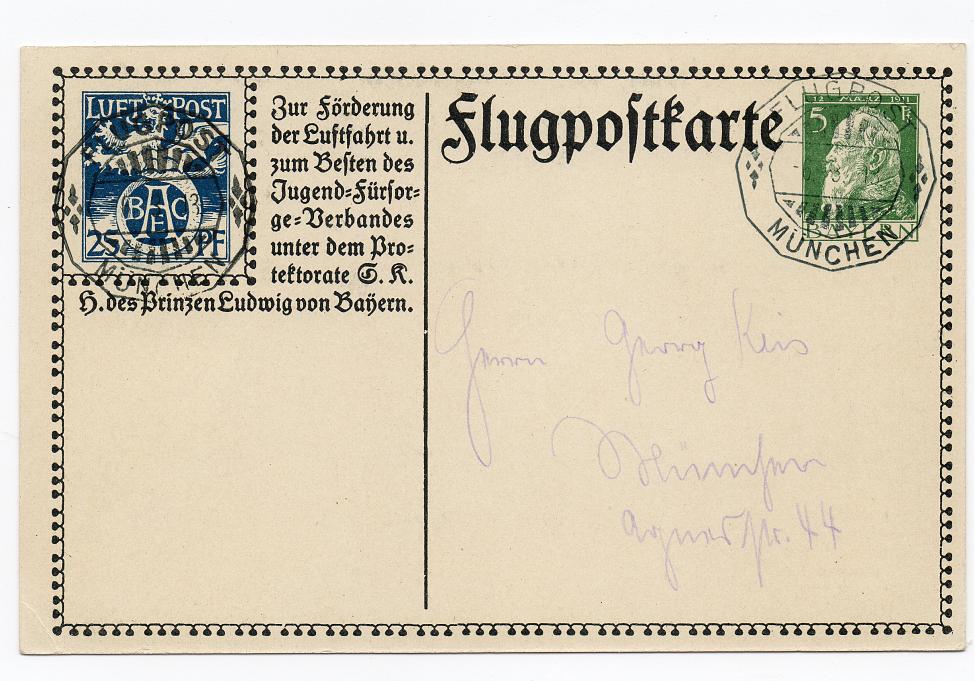 LUFT POST
BAEC
25 PF
FLUGPOST
MÜNCHEN
Zur Förderung
der Luftfahrt u.
zum Besten des
Jugend=Fürsor=
ge=Verbandes
unter dem Pro=
tektorate S. K.
H. des Prinzen Ludwig von Bayern.
Flugpostkarte
12 MÄRZ 1911
5 Pf
BAYERN
FLUGPOST
MÜNCHEN
Herrn Georg
München
Agnesstr. 44